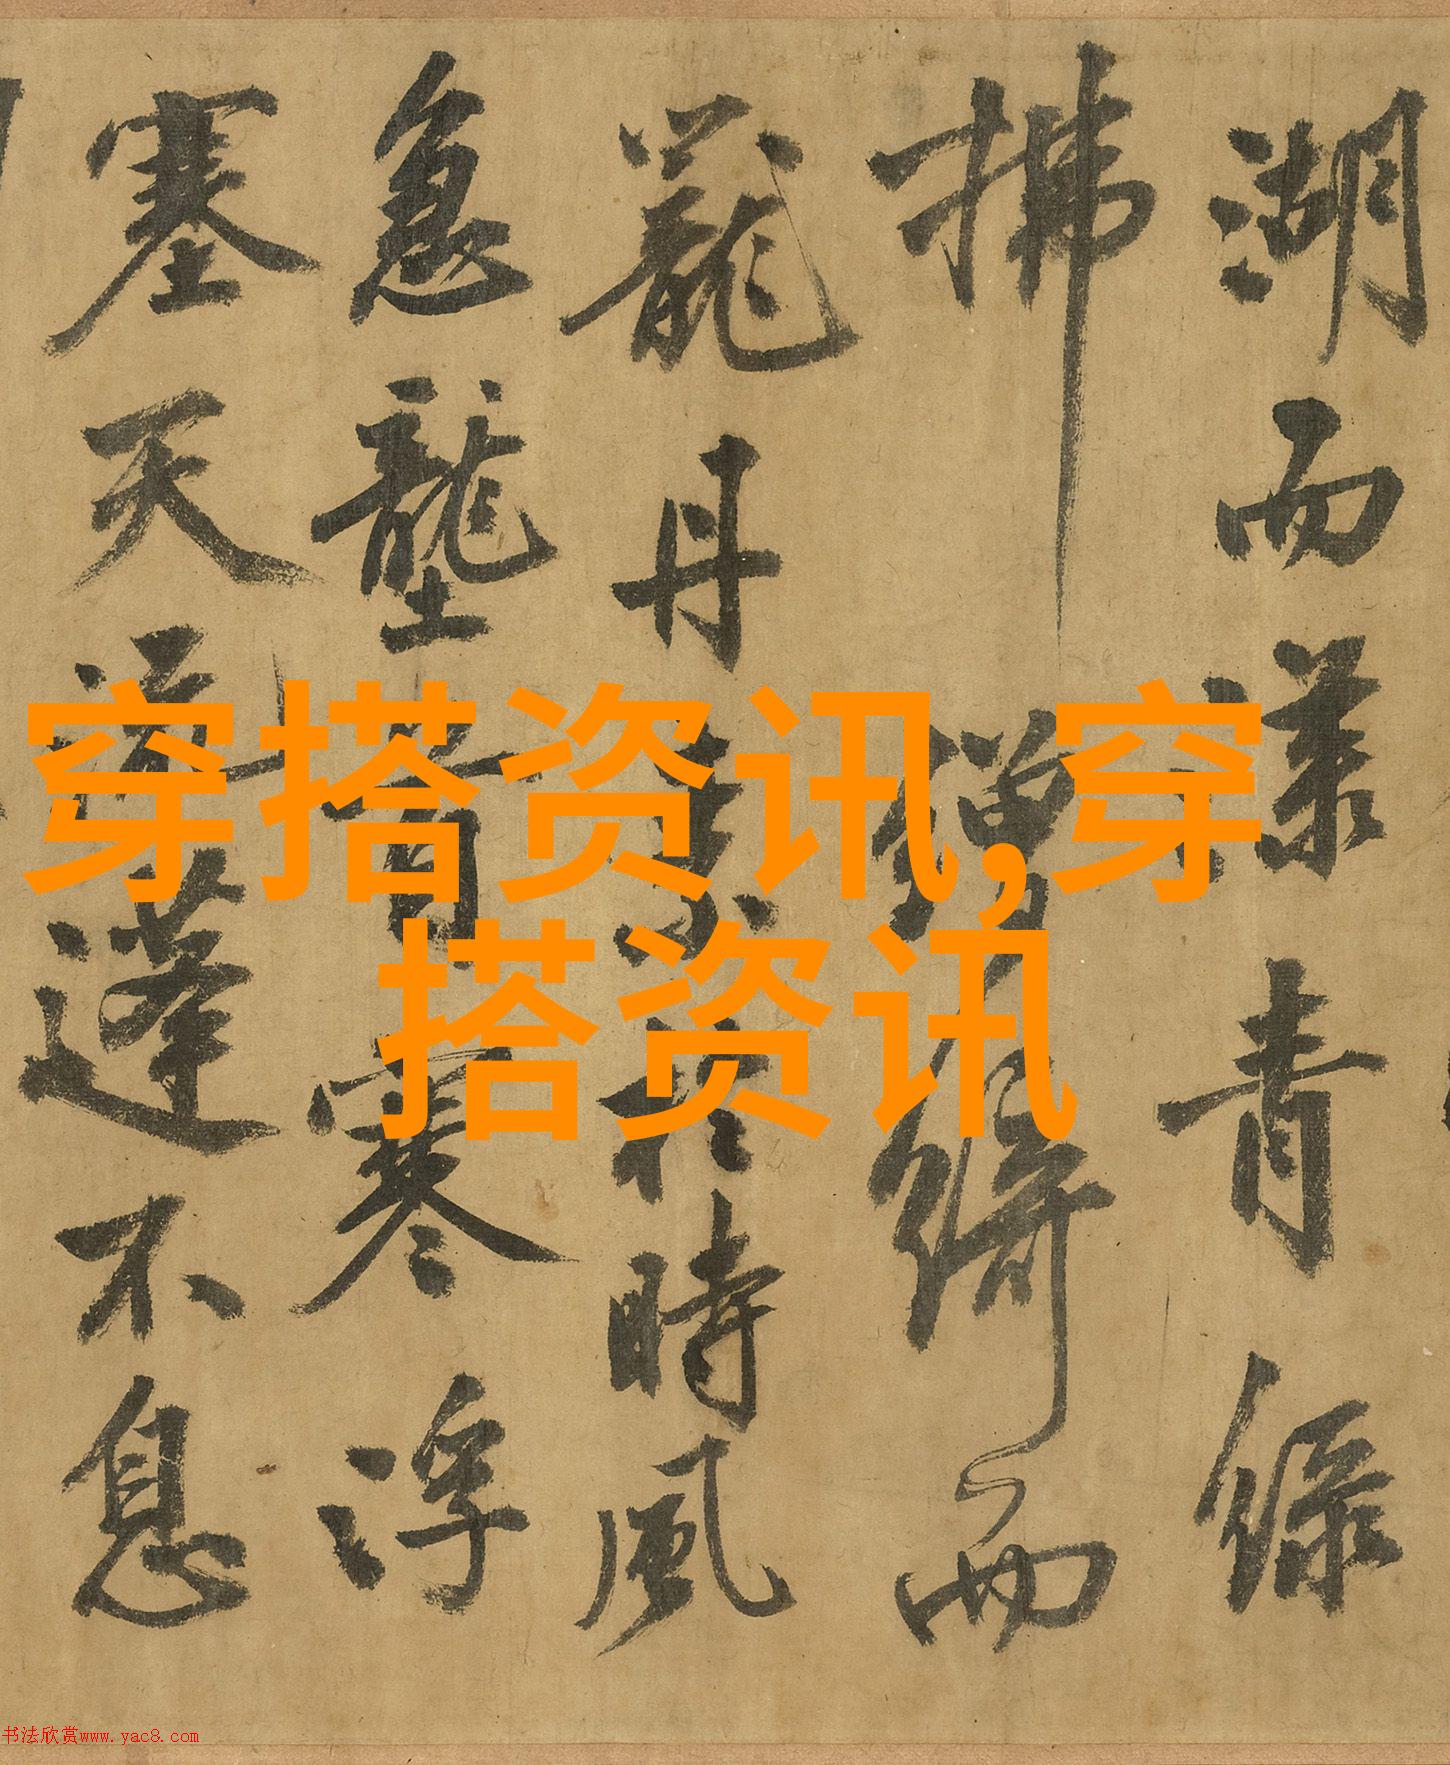 湖而漾青綠
拂繒綺而
籠丹於時風
急壟首寒浮
塞天蓬不息
穿搭资讯,穿
搭资讯
书法欣赏www.yac8.com